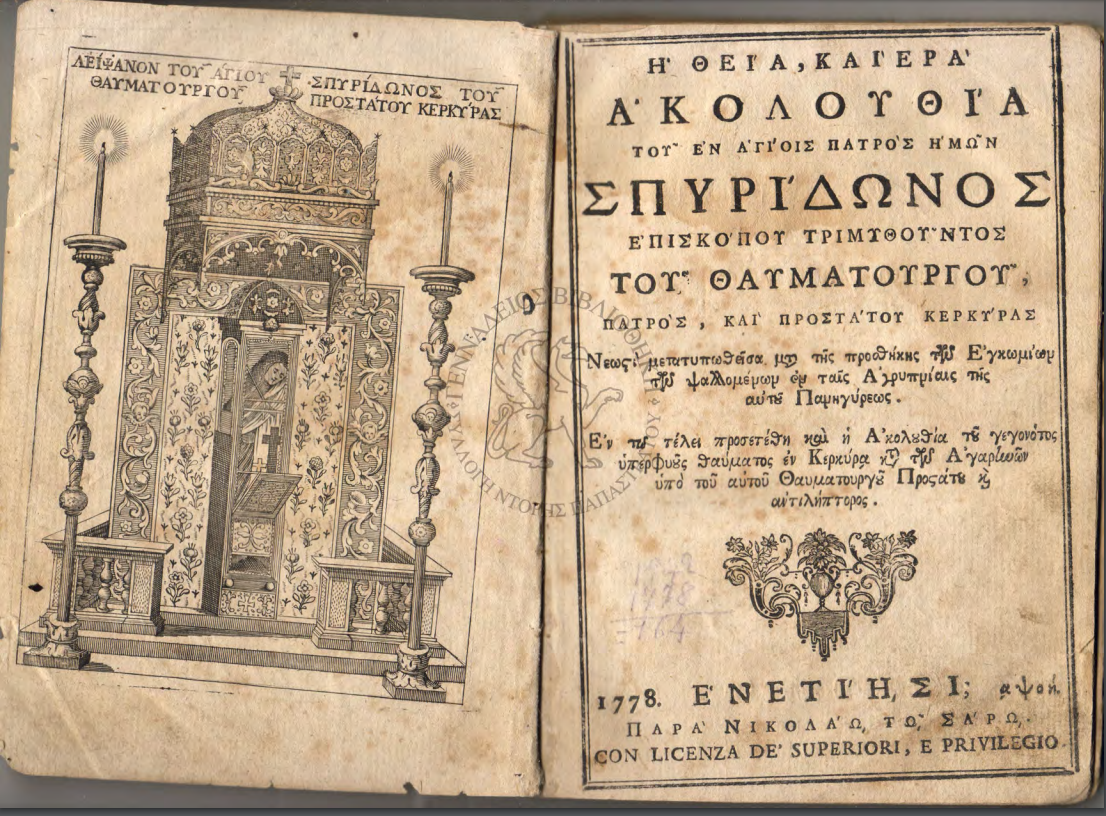 ΛΕΙ´ΨΑΝΟΝ ΤΟΥ῀ ΑΓΙΟΥ ΣΠΥΡΙ´ΔΩΝΟΣ ΤΟΥ῀
ΘΑΥΜΑΤΟΥΡΓΟΥ῀ ΠΡΟΣΤΑ´ΤΟΥ ΚΕΡΚΥ´ΡΑΣ
Η῾ ΘΕΙ´Α, ΚΑΙ`ΕΡΑ`
Α᾿ΚΟΛΟΥΘΙ´Α
ΤΟΥ῀ ΕΝ Α῾ΓΙ´ΟΙΣ ΠΑΤΡΟ`Σ Η῾ΜΩ῀Ν
ΣΠΥΡΙ´ΔΩΝΟΣ
Ε᾿ΠΙΣΚΟ´ΠΟΥ ΤΡΙΜΥΘΟΥ῀ΝΤΟΣ
ΤΟΥ῀ ΘΑΥΜΑΤΟΥΡΓΟΥ῀,
ΠΑΤΡΟ`Σ, ΚΑΙ` ΠΡΟΣΤΑ´ΤΟΥ ΚΕΡΚΥ´ΡΑΣ
Νεωςὶ μετατυπωθεῖσα μϟ τῆς προσθήκης τῶν Ε᾿γκωμίων
τῶν ψαλλομένων ἐν ταῖς Α᾿γρυπνίαις τῆς
αὐτῦ Πανηγύρεως.
Εν τῷ τέλει προσετέθη καὶ ἡ Ακολυθία τῦ γεγονότος
ὑπερφυῦς θαύματος ἐν Κερκύρᾳ ϗ τῶν Α᾿γαρηνῶν
ὑπὸ τοῦ αὐτοῦ Θαυματουργῦ Προςάτυ ϗ
αντιλήπτορος.
1778. Ε᾿ΝΕΤΙ´ΗΣΙ; αψοή.
ΠΑΡΑ` ΝΙΚΟΛΑ´Ω, ΤΩ, ΣΑ´ΡΩ,.
CON LICENZA DE' SUPERIORI, E PRIVILEGIO.
ΓΕΝΝΑΔΕΙΟΣ ΒΙΒΛΙΟΘΗΚΗ
1778